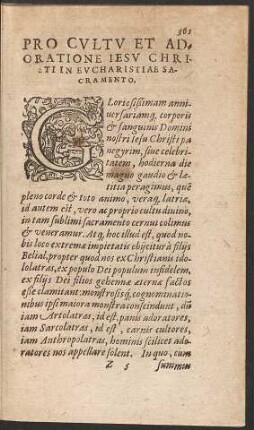 361
PRO CVLTV ET AD-
ORATIONE IESV CHRI-
STI IN EVCHARISTIAE SA-
CRAMENTO.
GLoriosissimam anni-
uersariamq, corporis
& sanguinis Domini
nostri Iesu Christi pa
negyrim, siue celebri
tatem, hodierna die
magno gaudio & læ-
titia peragimus, quē
pleno corde & toto animo, veraq, latriæ,
id autem eit, vero ac proprio cultu diuino,
in tam sublimi sacramento cernui colimus
& veneramur. Atq, hoc illud est, quod no-
bis loco extrema impietatis obijcitur à filijs
Belial, propter quod nos ex Christianis ido-
lolatras, ex populo Dei populum infidelem,
ex filijs Dei filios gehennæ æternæ factos
esse clamitant: monstrosisq, cognominatio-
nibus ipsi maiora monstra conscindunt, dū
iam Artolatras, id est, panis adoratores,
iam Sarcolatras, id est, carnis cultores,
iam Anthropolatras, hominis scilicet ado-
ratores nos appellare solent. In quo, cum
Z 5 summa